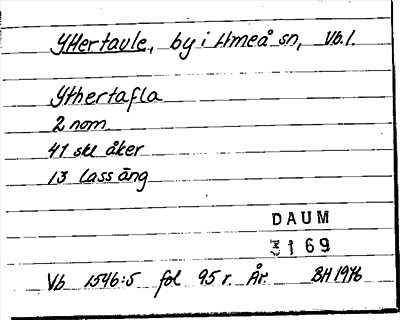 Yttertavle, by i Umeå sn, Vb.l.
Ythertafla
2 nom
41 skl åker
13 lass äng
DAUM
3169
Vb 1546:5 fol 95 r. År. BH 1976